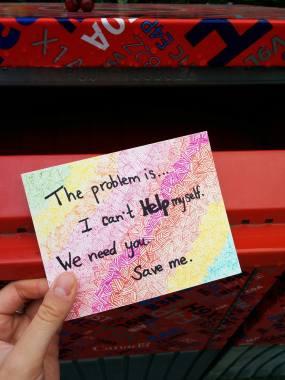 The problem is...
I can't Help myself.
We need you.
Save me.
Canada